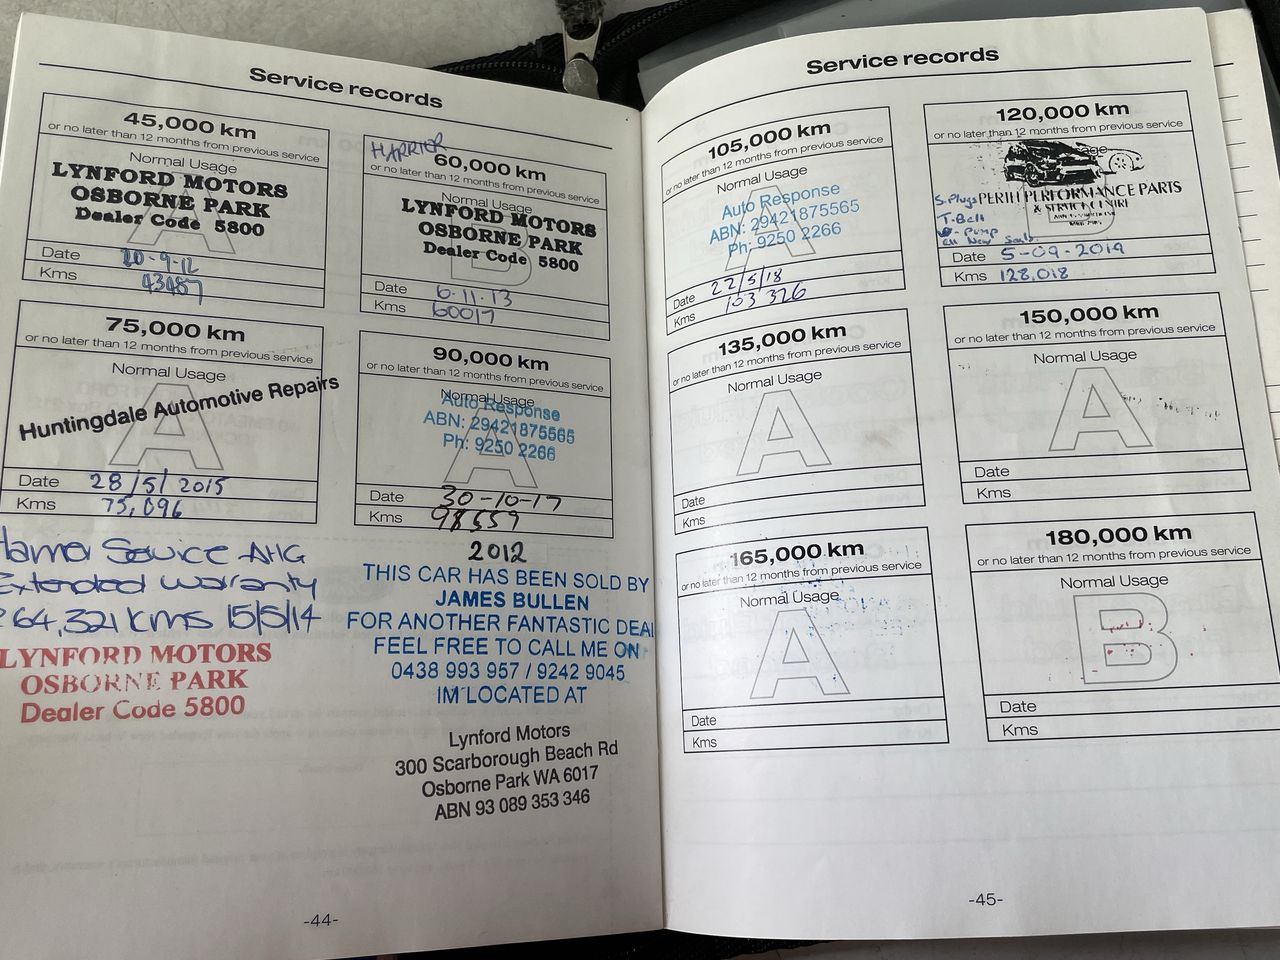 Service records
45,000 km
or no later than 12 months from previous service
Normal Usage
A
LYNFORD MOTORS
OSBORNE PARK
Dealer Code 5800
Date 20-9-12
Kms 43487
HARRIER
60,000 km
or no later than 12 months from previous service
Normal Usage
B
LYNFORD MOTORS
OSBORNE PARK
Dealer Code 5800
Date 6-11-13
Kms 60017
75,000 km
or no later than 12 months from previous service
Normal Usage
A
Huntingdale Automotive Repairs
Date 28/5/2015
Kms 75,096
90,000 km
or no later than 12 months from previous service
Normal Usage
A
Auto Response
ABN: 29421875565
Ph: 9250 2266
Date 30-10-17
Kms 98559
Service
Extended Warranty
64,321 Kms 15/5/14
LYNFORD MOTORS
OSBORNE PARK
Dealer Code 5800
2012
THIS CAR HAS BEEN SOLD BY
JAMES BULLEN
FOR ANOTHER FANTASTIC DEAL
FEEL FREE TO CALL ME ON
0438 993 957 / 9242 9045
IM LOCATED AT
Lynford Motors
300 Scarborough Beach Rd
Osborne Park WA 6017
ABN 93 089 353 346
-44-
Service records
105,000 km
or no later than 12 months from previous service
Normal Usage
A
Auto Response
ABN: 29421875565
Ph: 9250 2266
Date 22/5/18
Kms 103 326
120,000 km
or no later than 12 months from previous service
PERTH PERFORMANCE PARTS
& SERVICE CENTRE
S.Plugs
T-Belt
W-Pump
Date 5-09-2019
Kms 128,018
135,000 km
or no later than 12 months from previous service
Normal Usage
A
Date
Kms
150,000 km
or no later than 12 months from previous service
Normal Usage
A
Date
Kms
165,000 km
or no later than 12 months from previous service
Normal Usage
A
Date
Kms
180,000 km
or no later than 12 months from previous service
Normal Usage
B
Date
Kms
-45-